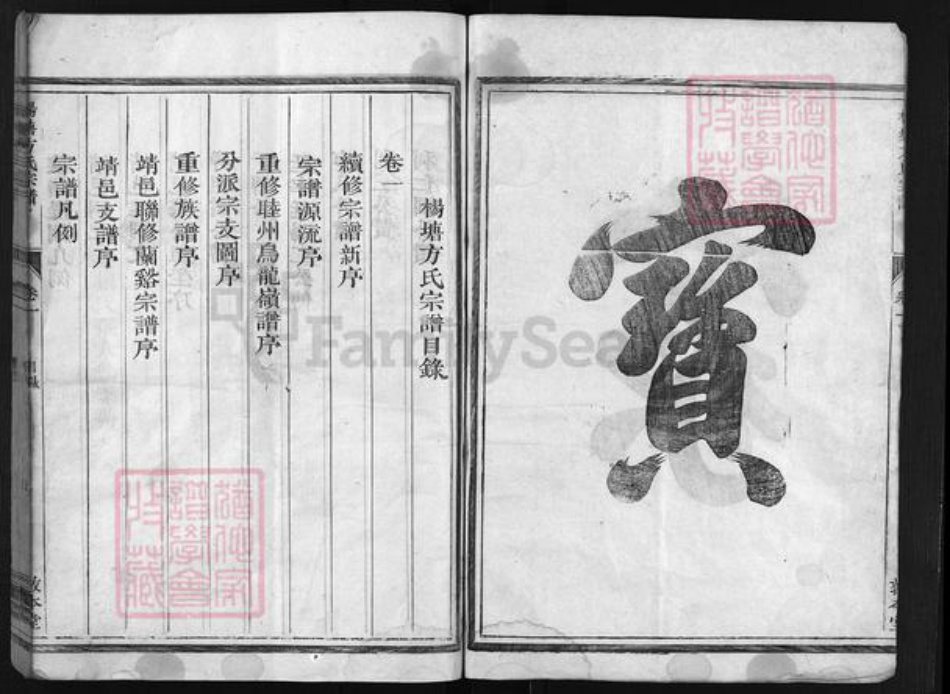 寳
楊塘方氏宗譜目錄
卷一
續修宗譜新序
宗譜源流序
重修睦州烏龍嶺譜序
分派宗支圖序
重修族譜序
靖邑聯修蘭谿宗譜序
靖邑支譜序
宗譜凡例
楊塘方氏宗譜
卷一
FamilySea